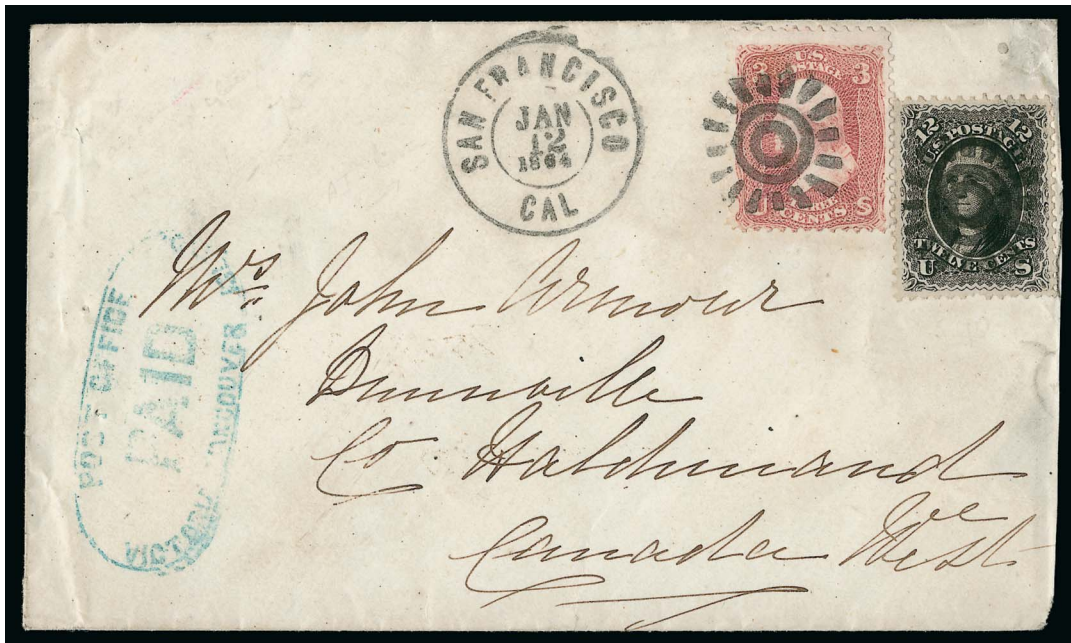 SAN FRANCISCO
JAN
12
1864
CAL
3 3
U.S.
POSTAGE
CENTS
U S
12 12
U.S. POSTAGE
TWELVE CENTS
U S
POST OFFICE
PAID
Mrs. John Armour
Dunnville
Co Haldimand
Canada West